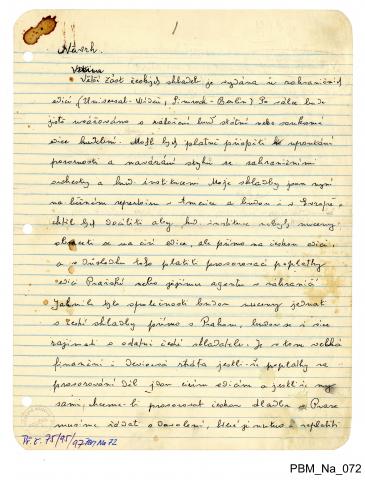 1
Návrh.
Většina
Větší část českých skladeb je vydána v zahraničních
edici (Universal-Wídeň, Simrock-Berlin) Po válce bude
jistě uvažováno o založení buď státní nebo soukromé
edice hudební. Mohl bych platně přispěti k upevnění
pozornosti a navázání styků se zahraničními
orchestry a hud. institucemi. Moje skladby jsou nyní
na běžném repertoiru v Americe a budou i v Evropě
chtěl bych docíliti aby hud. instituce nebyly nuceny
obraceti se na cizí edice, ale přímo na českou edici
a v důsledku toho platiti provozovací poplatky
edici Pražské nebo jejímu agentu v zahraničí.
Jakmile tyto společnosti budou nuceny jednat
o české skladby přímo s Prahou, budou se i více
zajímati o ostatní české skladatele. Je v tom velká
finanční i devisová ztráta jestli-že poplatky za
provozování děl jdou cizím edicím a jestliže my
sami, chceme-li provozovat českou hudbu v Praze
musíme žádat o dovolení, které je nutno zaplatiti
Př. č. 75/95/
PBM_Na_072